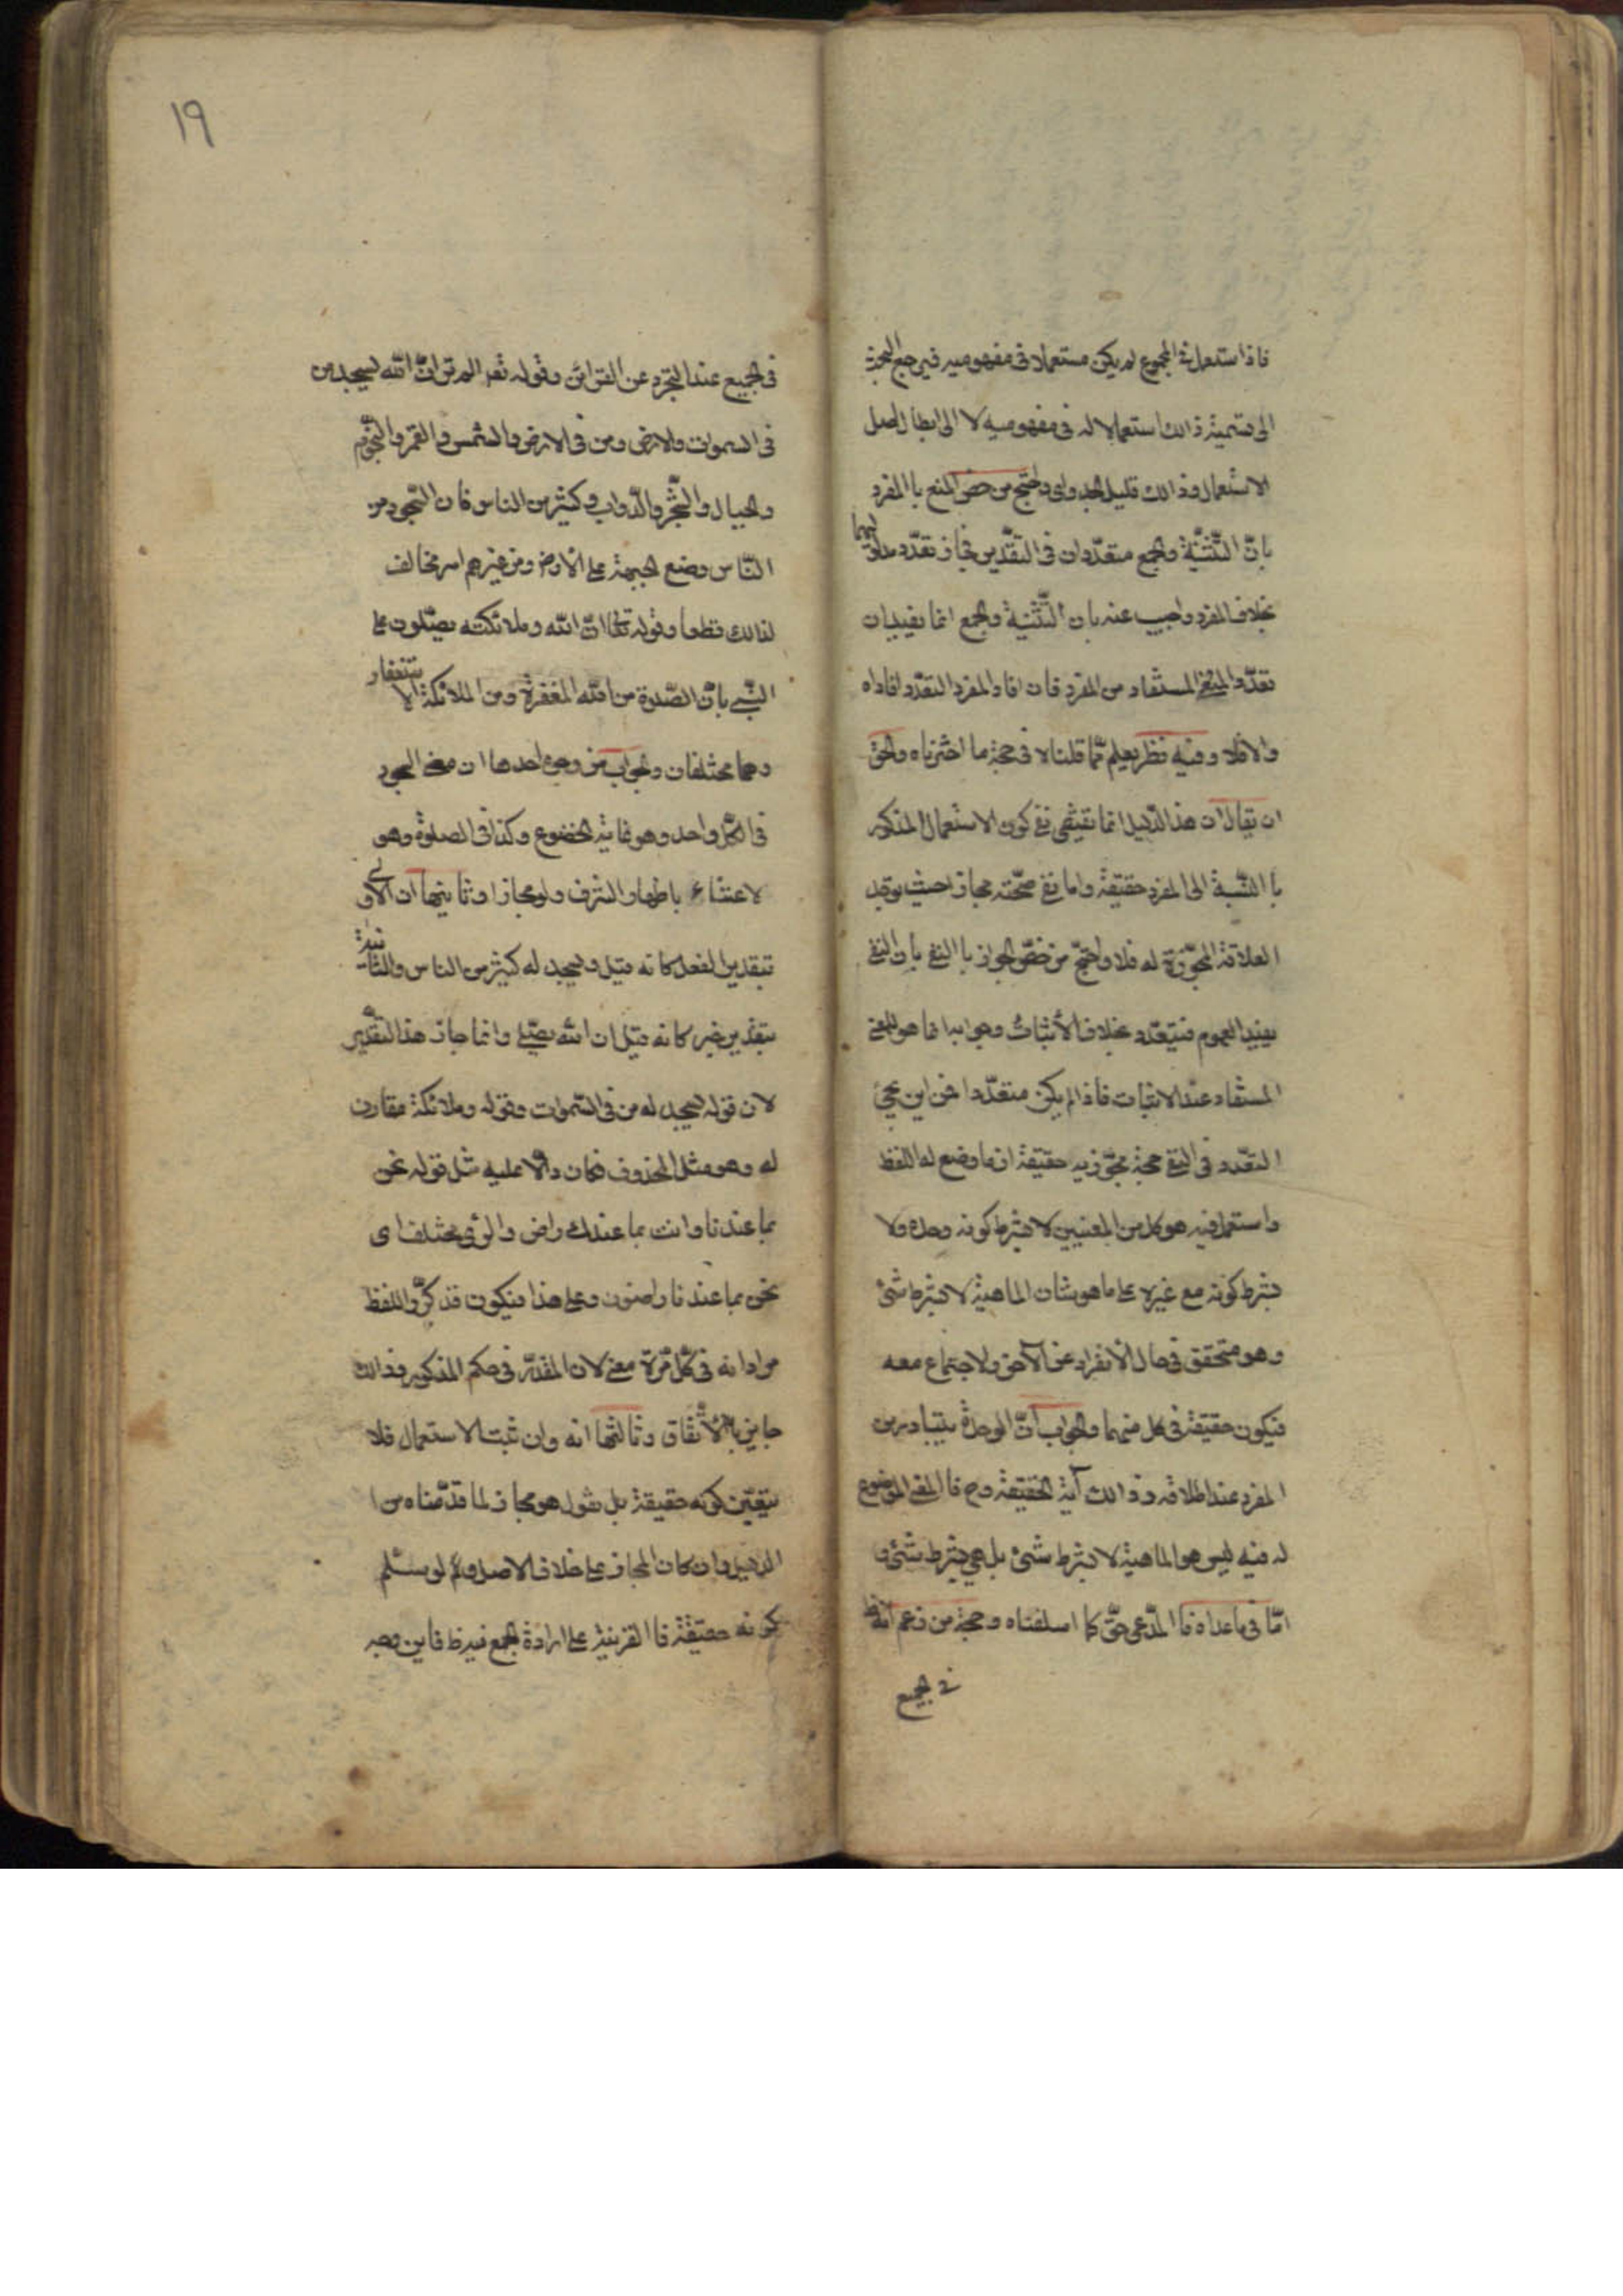 فاذا استعمل في المجموع لم يكن مستعملا في مفهوميه فيرجع البحث
الى تسمية ذالك استعمالا له في مفهوميه لا الى ابطال اصل
الاستعمال وذالك قليل الجدوى واحتج من خص المنع باالمفرد
بانّ التّثنية والجمع متعدّدان في التقدير فجاز تعدّد مدلوليهما
بخلاف المفرد واجيب عنه بان التّثنية والجمع انما يفيدان
تعدّد المعنى المستفاد من المفرد فان افاد المفرد التعدّد افاداه
والا فلا وفيه نظر يعلم ممّا قلناه في حجة ما اخترناه والحق
ان يقال ان هذا الدّليل انما يقتضى نفى كون الاستعمال المذكور
باالنّسبة الى المفرد حقيقة واما نفى صحّته مجازا حيث يوجد
العلاقة المجوّزة له فلا واحتجّ من خصّ الجواز باالنفى بان النفى
يفيد العموم فيتعدّد بخلاف الأثبات وجوابه انما هو للمعنى
المستفاد عند الاثبات فاذا لم يكن متعدّدا فمن اين يجئ
التعّدد في النفى حجة مجوّزيه حقيقة ان ما وضع له اللفظ
واستعمل فيه هو كل من المعنيين لا بشرط كونه وحده ولا
بشرط كونه مع غيره على ما هو شان الماهيّة لا بشرط شئ
وهو متحقق في حال الأنفراد عن الآخر والاجتماع معه
فيكون حقيقة في كل منهما والجواب انّ الوحدة يتبادر من
المفرد عند اطلاقه وذالك آية الحقيقة وح فاالمعنى الموضوع
له فيه ليس هو الماهيّة لا بشرط شئ بل هي بشرط شئ و
امّا في ما عداه فاالمدّعى حقّ كما اسلفناه وحجة من زعم انه ظ
في الجميع
١٩
في الجميع عند التجرد عن القرائن وقوله تعه الم تر انّ اللّه يسجد من
في السموات والارض ومن في الارض والشمس والقمر والنّجوم
والجبال والشّجر والدّواب وكثير من الناس فان السّجود من
النّاس وضع الجبهة على الأرض ومن غيرهم امر مخالف
لذالك قطعا وقوله تعالى انّ اللّه وملائكته يصّلون على
النّبى بانّ الصّلوة من اللّه المغفرة ومن الملائكة الاستغفار
وهما مختلفان والجواب من وجوه احدها ان معنى السجود
في الكلّ واحد وهو غاية الخضوع وكذا في الصلوة وهو
لاعتناء باظهار الشرف ولو مجازا وثانيها ان الاولى
بتقدير الفعل كانه قيل ويسجد له كثير من الناس والثانية
بتقدير خبر كانه قيل ان اللّه يصّلى وانما جاز هذا التقدير
لان قوله يسجد له من في السّموات وقوله وملائكة مقارن
له وهو مثل المحذوف فكان دالا عليه مثل قوله نحن
بما عندنا وانت بما عندك راض والرّى مختلف اى
نحن بما عندنا راضون وعلى هذا فيكون قد كرّر اللفظ
مرادا به في كلّ مرّة معنى لان المقدّر في حكم المذكور وذالك
جايز باالأتّفاق وثالثها انه وان ثبت الاستعمال فلا
يتعيّن كونه حقيقة بل نقول هو مجاز لما قدّمناه من ا
الدليل وان كان المجاز على خلاف الاصل ولو سلّم
كونه حقيقة فاالقرينة على ارادة الجمع فيه ظ فاين وجه